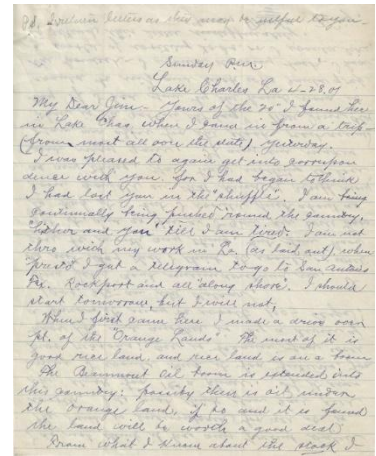 Sunday
Lake Charles La 4-28.01
My Dear Jim - Yours of the 20" I found here
in Lake Chas. when I came in from a trip
(from most all over the state) yesterday.
I was pleased to again get into correspon
dence with you for I had began to think
I had lost you in the "shuffle". I am being
continually being pushed round the country,
"hither and yon" till I am tired. I am not
thro with my work in La. (as laid out) when
presto I get a telegram to go to San Antonio
Tex. Rockport and all along shore. I should
start tomorrow, but I will not,
When I first came here I made a drive over
pt. of the "Orange Lands". The most of it is
good rice land and rice land is on a boom
The Beaumont Oil boom is extended into
this country: possibly there is oil under
the orange land, if so and it is found
the land will be worth a good deal.
From what I learn about the stock I